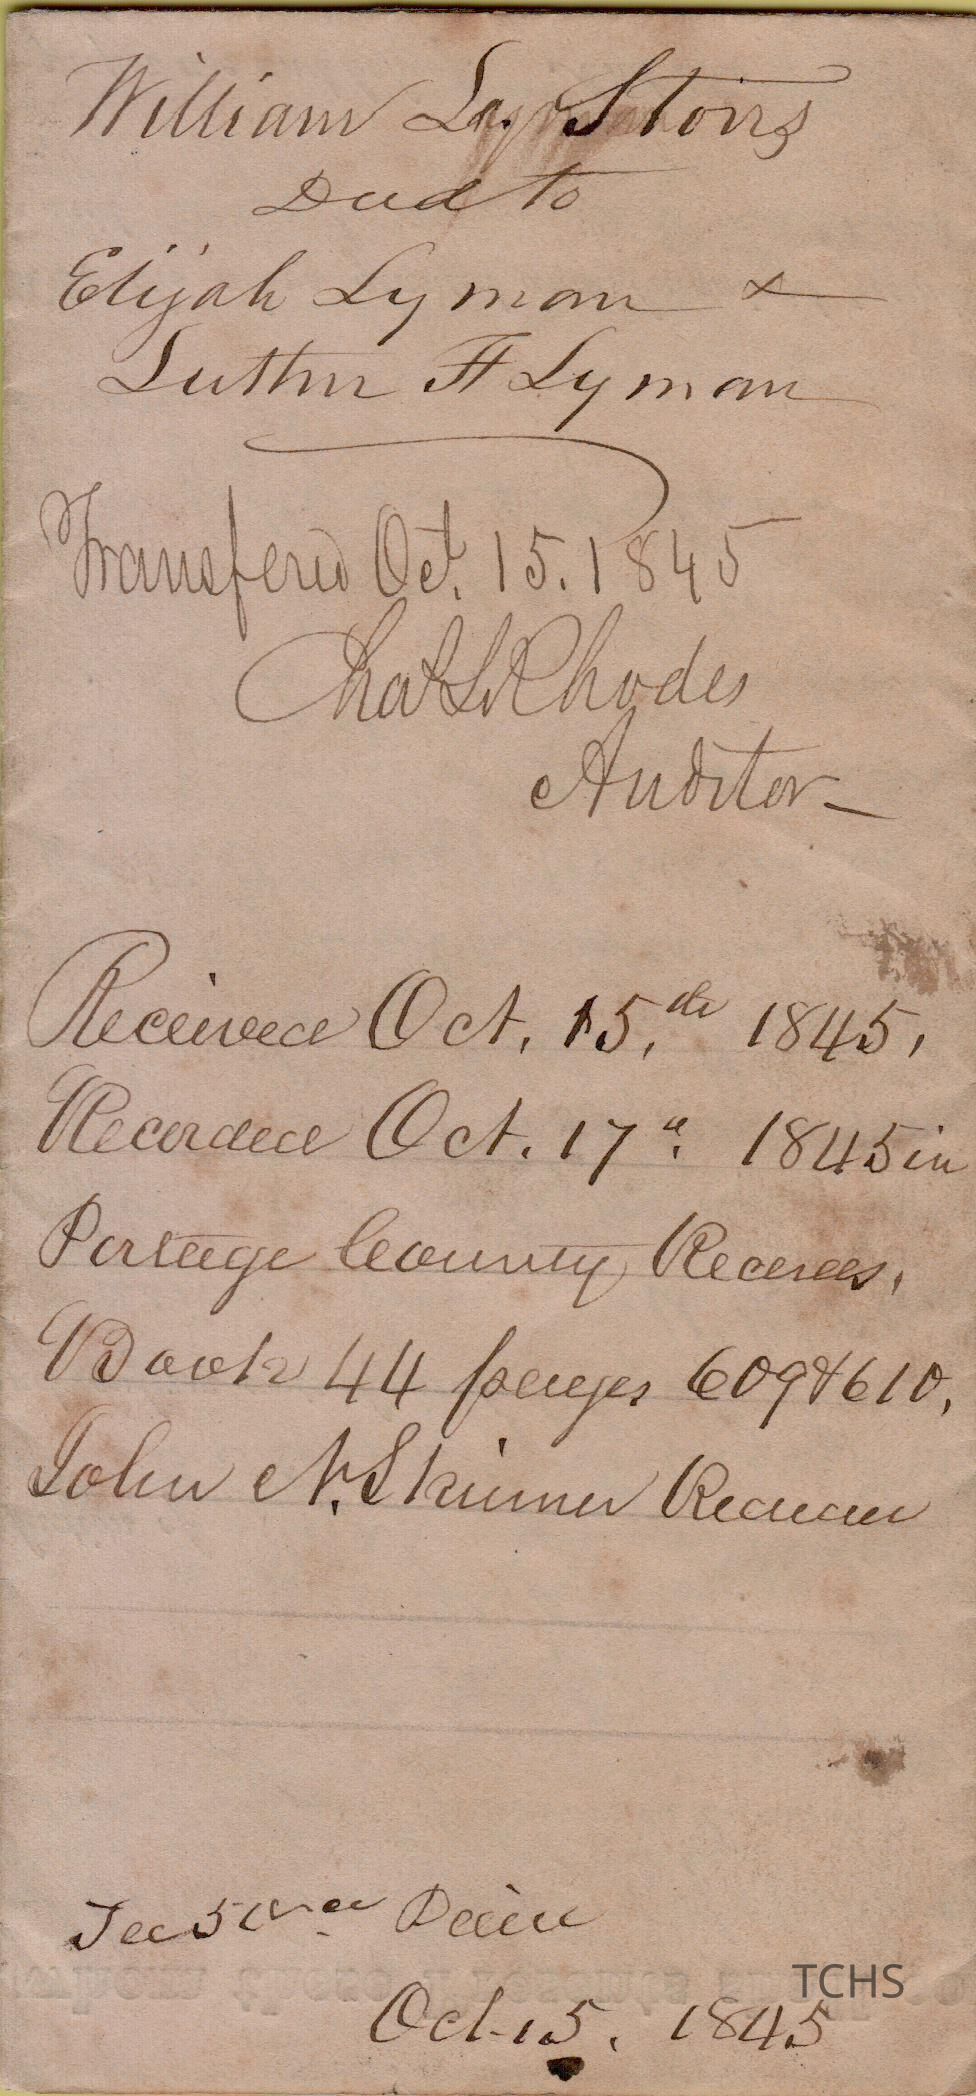 William Storrs
Deed to
Elijah Lyman &
Luther H Lyman
Transfered Oct. 15. 1845
Chas L Rhodes
Auditor
Received Oct. 15.th 1845,
Recorded Oct. 17" 1845 in
Portage County Records,
Book 44 pages 609 & 610,
John N. Skinner Recorder
Fee 5 Paid
Oct. 15. 1845
TCHS